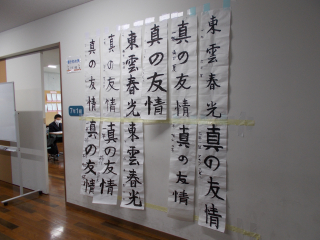 東雲春光
真の友情
真の友情
東雲春光
真の友情
真の友情
真の友情
真の友情
東雲春光
真の友情
真の友情